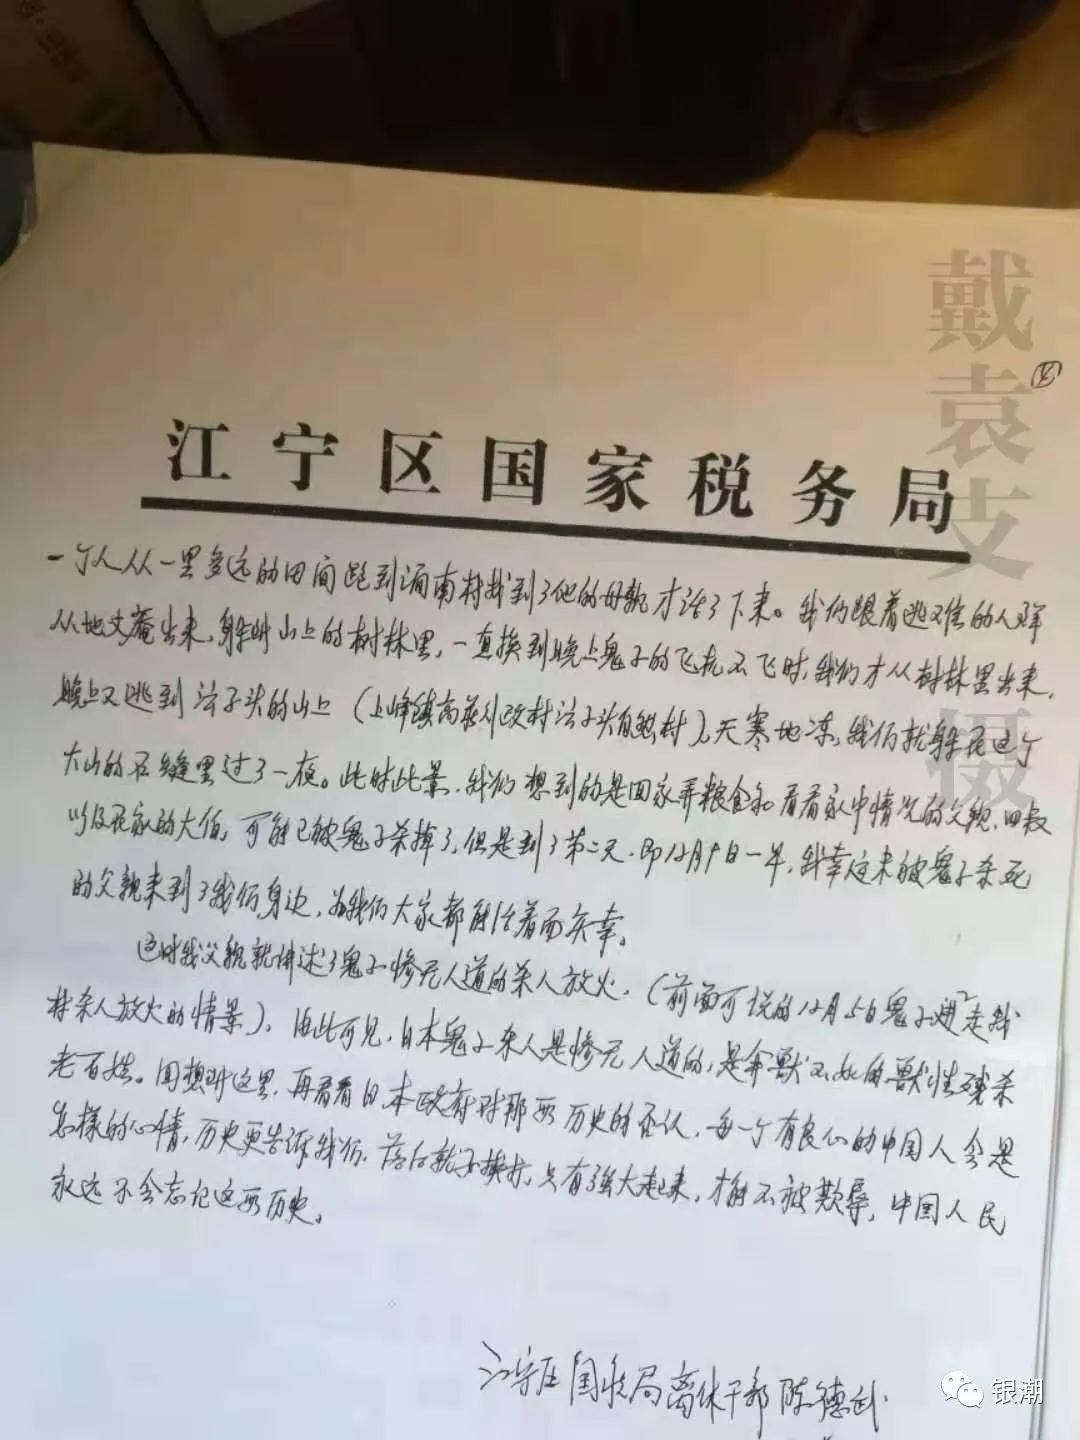 江宁区国家税务局
一个人从一里多远的田间跑到涧南村找到了他的母亲才活了下来。我们跟着逃难的人群
从地文庵出来,躲到山上的树林里,一直挨到晚上鬼子的飞机不飞时,我们才从树林里出来,
晚上又逃到法子头的山上(上峰镇高庄行政村法子头自然村)。天寒地冻,我们就躲在这个
大山的石缝里过了一夜。此时此景,我们想到的是回家弄粮食和看看家中情况的父亲、四叔
以及在家的大伯,可能已被鬼子杀掉了,但是到了第二天,即12月9日一早,我幸运未被鬼子杀死
的父亲来到了我们身边,为我们大家都能活着而庆幸。
这时我父亲就讲述了鬼子惨无人道的杀人放火,(前面可说的12月5日鬼子进 走我
村杀人放火的情景)。由此可见,日本鬼子杀人是惨无人道的,是禽兽不如的兽性残杀
老百姓。回想到这里,再看看日本政府对那段历史的否认,每一个有良心的中国人会是
怎样的心情,历史更告诉我们,落后就要挨打,只有强大起来,才能不被欺辱,中国人民
永远不会忘记这段历史。
江宁区国税局离休干部 陈德武
戴袁支 摄
银潮